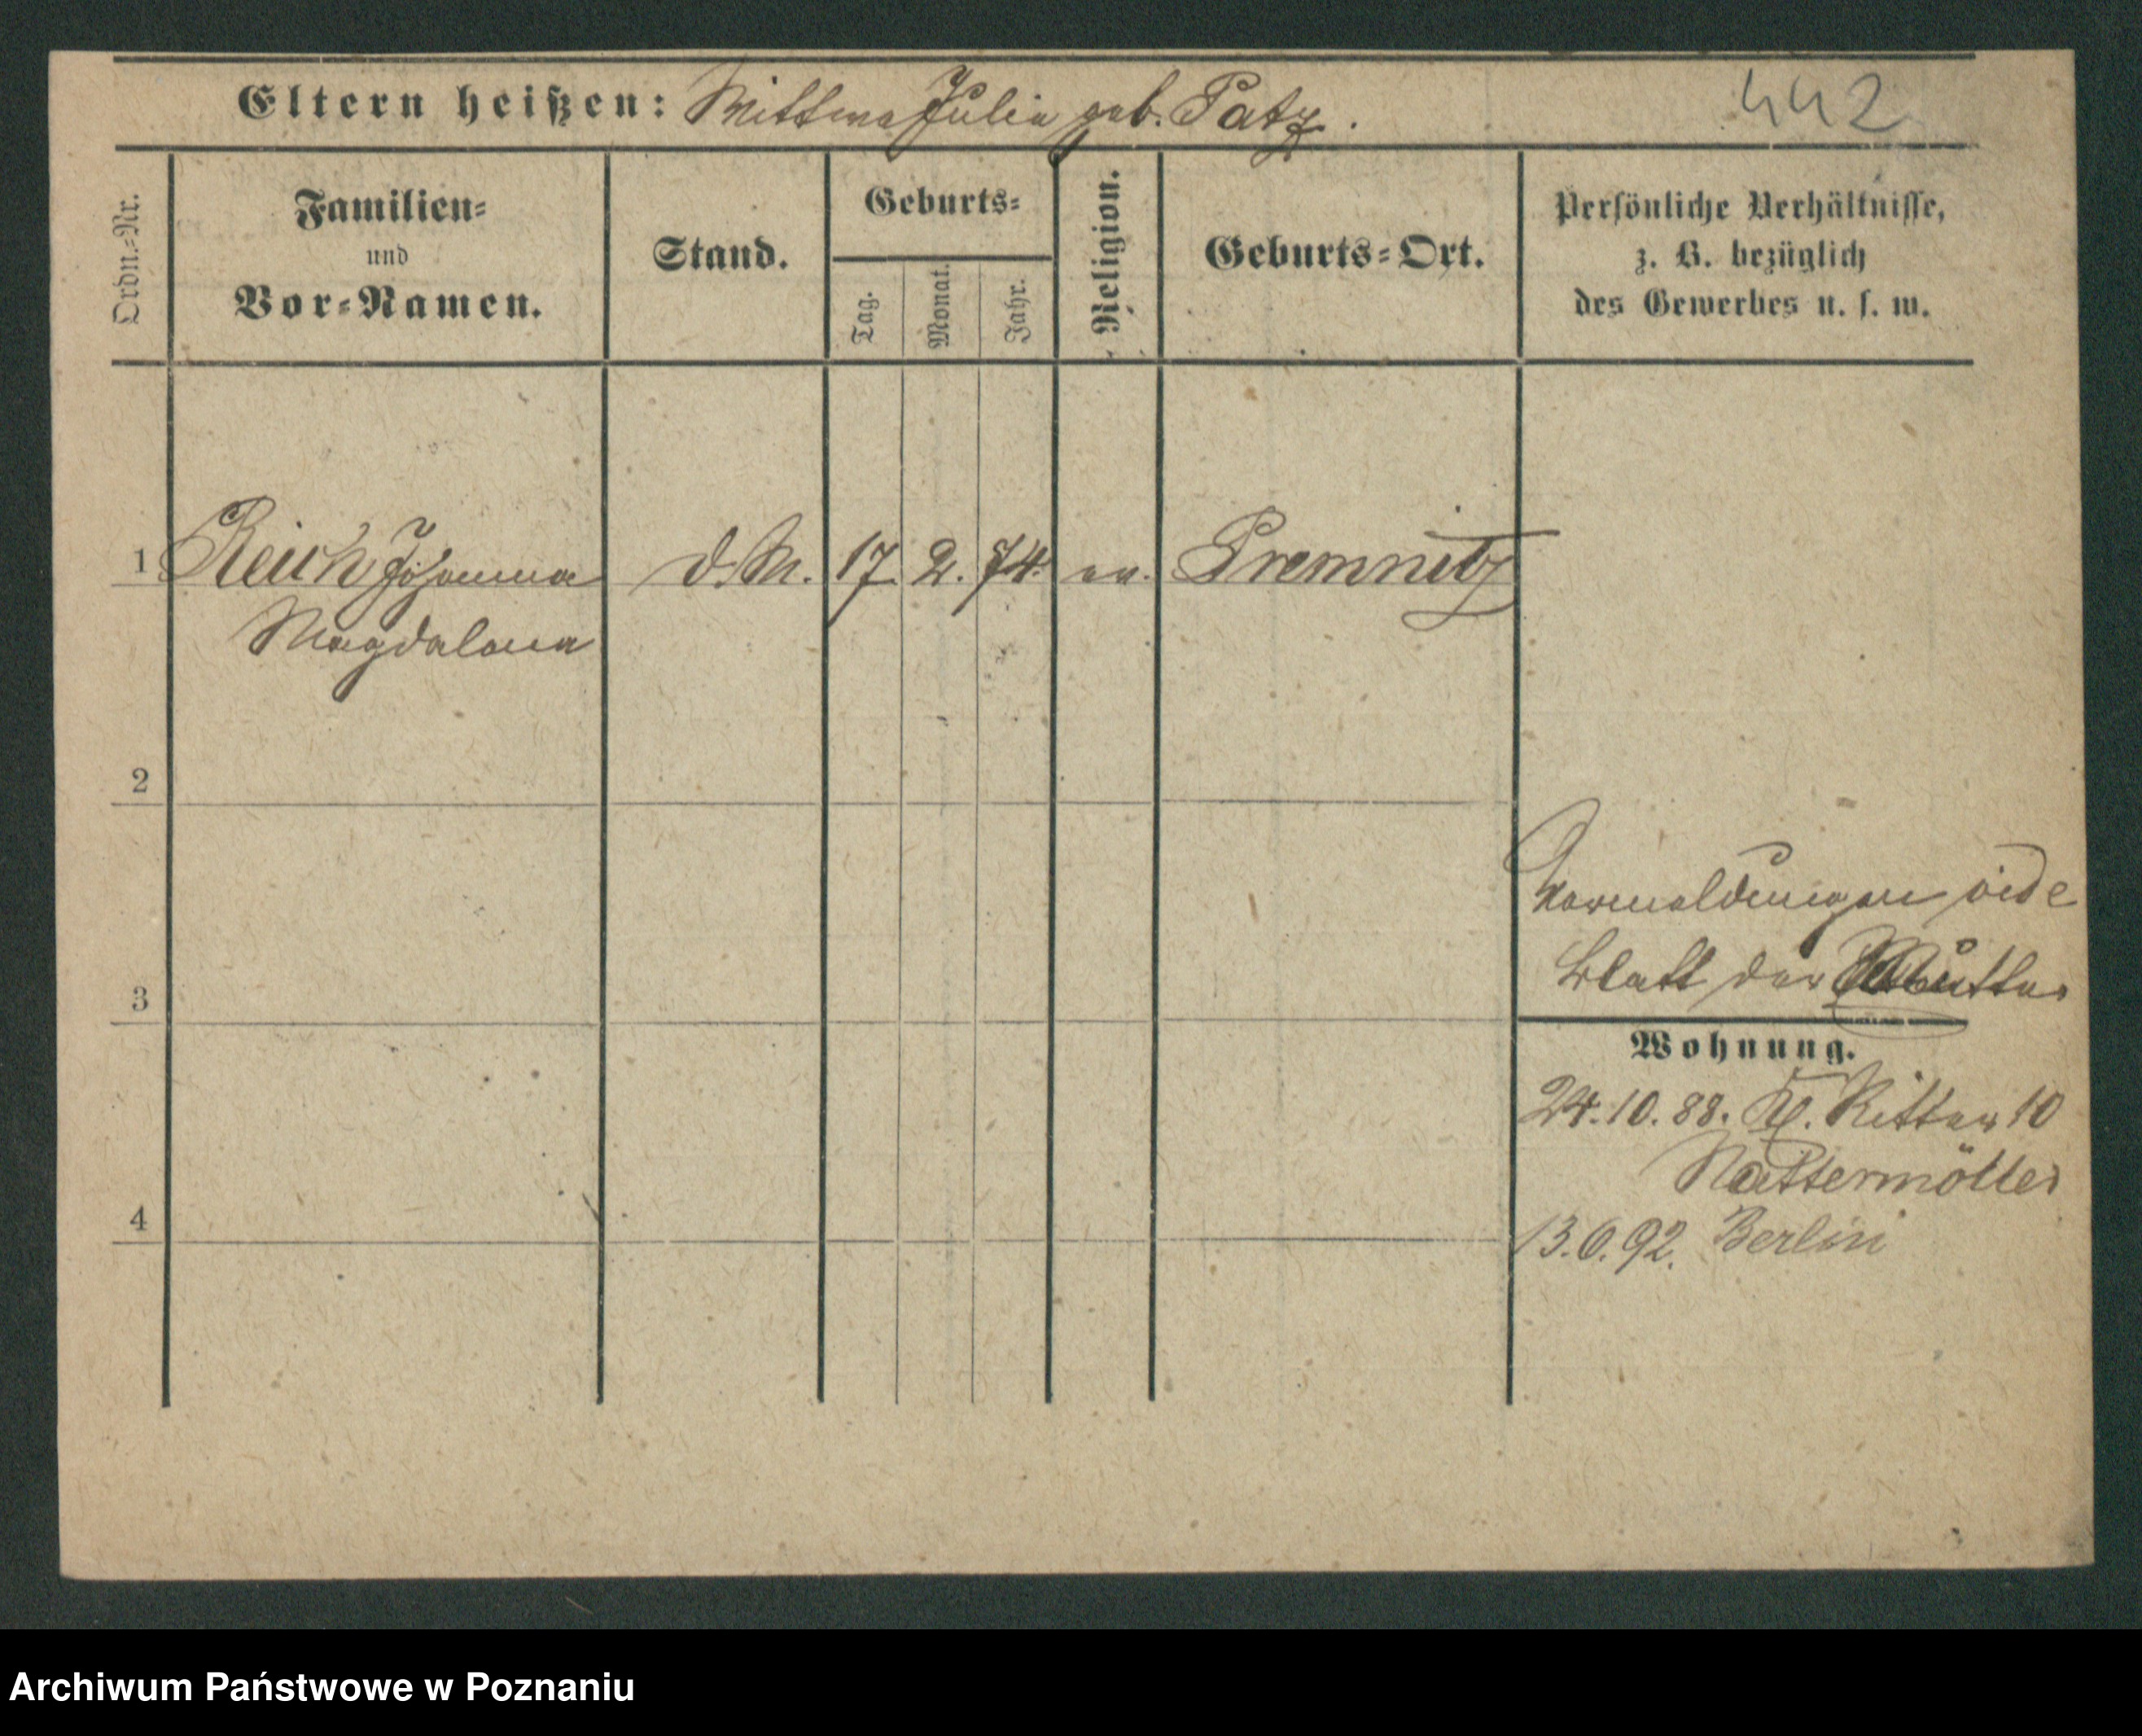 Eltern heißen: Wittwe Julia geb. Patz.
442
Ordn.-Nr.
Familien-
und
Vor-Namen.
Stand.
Geburts-
Tag.
Monat.
Jahr.
Religion.
Geburts-Ort.
Persönliche Verhältnisse,
z. B. bezüglich
des Gewerbes u. s. w.
1 Reich Johanna d. M. 17. 2. 74. ev. Premnitz
Magdalena
2
vide
3 Blatt der Mutter
Wohnung.
24.10.88. Kl. Ritter 10
4 13.6.92. Berlin
Archiwum Państwowe w Poznaniu